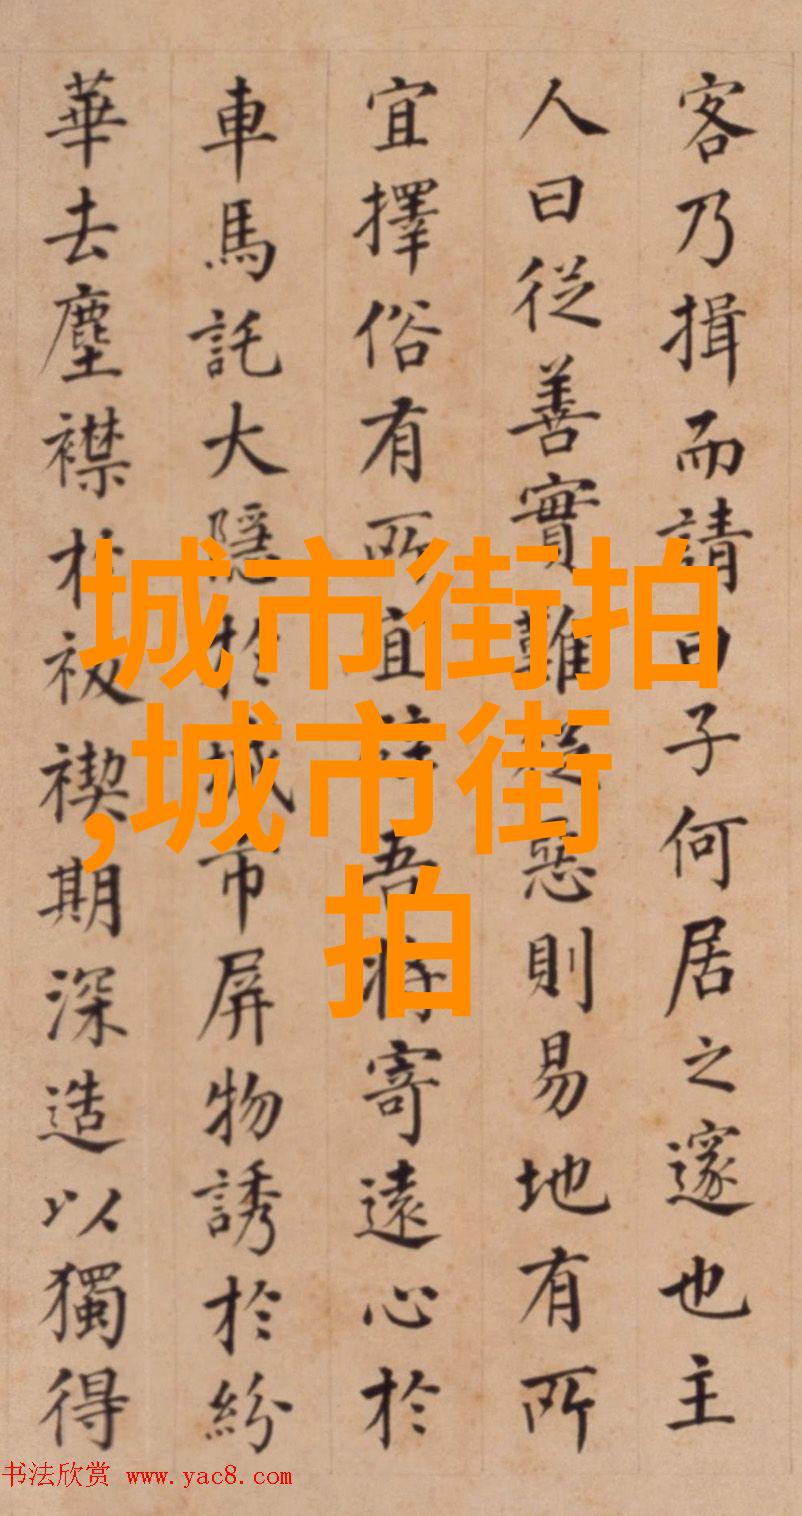 客乃揖而請曰子何居之邃也主
人曰從善實難從惡則易地有所
宜擇俗有所宜吾將寄遠心於
車馬託大隱於城市屏物誘於紛
華去塵襟於祓禊期深造以獨得
城市街拍
,城市街
拍
书法欣赏 www.yac8.com